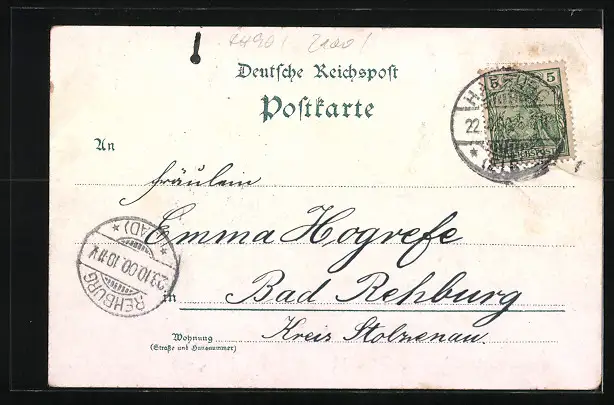 Deutsche Reichspost
Postkarte
5 5
22.
An
Fräulein
Emma Hogrefe
in Bad Rehburg
Kreis Stolzenau.
Wohnung
(Straße und Hausnummer)
REHBURG
23.10.00.10-11V.
* (BAD) *